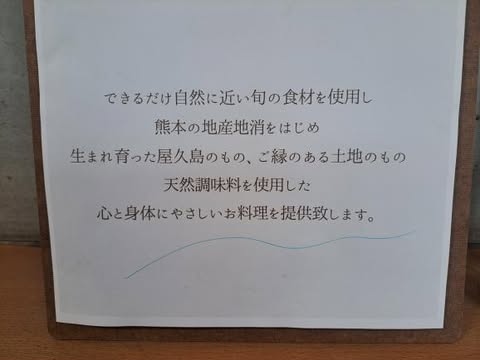 できるだけ自然に近い旬の食材を使用し
熊本の地産地消をはじめ
生まれ育った屋久島のもの、ご縁のある土地のもの
天然調味料を使用した
心と身体にやさしいお料理を提供致します。